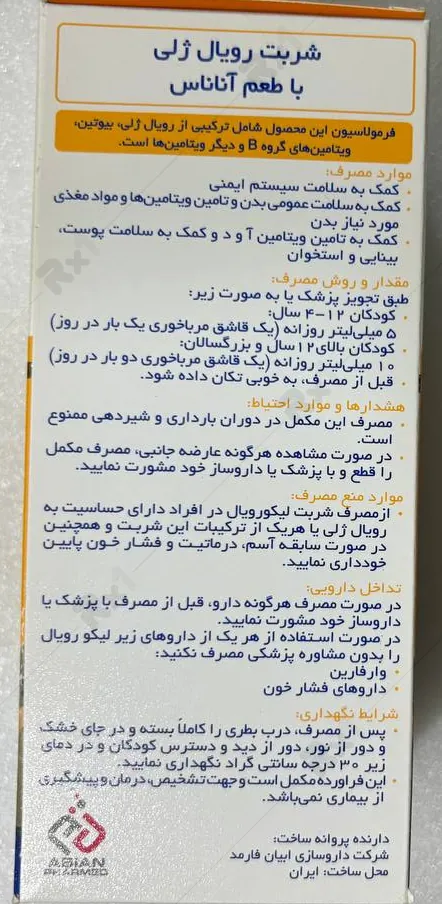 شربت رویال ژلی
با طعم آناناس
فرمولاسیون این محصول شامل ترکیبی از رویال ژلی، بیوتین،
ویتامین‌های گروه B و دیگر ویتامین‌ها است.
موارد مصرف:
• کمک به سلامت سیستم ایمنی
• کمک به سلامت عمومی بدن و تامین ویتامین‌ها و مواد مغذی
مورد نیاز بدن
• کمک به تامین ویتامین آ و د و کمک به سلامت پوست،
بینایی و استخوان
مقدار و روش مصرف:
طبق تجویز پزشک یا به صورت زیر:
• کودکان ۱۲-۴ سال:
۵ میلی‌لیتر روزانه (یک قاشق مرباخوری یک بار در روز)
• کودکان بالای ۱۲ سال و بزرگسالان:
۱۰ میلی‌لیتر روزانه (یک قاشق مرباخوری دو بار در روز)
• قبل از مصرف، به خوبی تکان داده شود.
هشدارها و موارد احتیاط:
• مصرف این مکمل در دوران بارداری و شیردهی ممنوع
است.
• در صورت مشاهده هرگونه عارضه جانبی، مصرف مکمل
را قطع و با پزشک یا داروساز خود مشورت نمایید.
موارد منع مصرف:
• از مصرف شربت لیکورویال در افراد دارای حساسیت به
رویال ژلی یا هریک از ترکیبات این شربت و همچنین
در صورت سابقه آسم، درماتیت و فشار خون پایین
خودداری نمایید.
تداخل دارویی:
در صورت مصرف هرگونه دارو، قبل از مصرف با پزشک یا
داروساز خود مشورت نمایید.
در صورت استفاده از هر یک از داروهای زیر لیکو رویال
را بدون مشاوره پزشکی مصرف نکنید:
• وارفارین
• داروهای فشار خون
شرایط نگهداری:
• پس از مصرف، درب بطری را کاملاً بسته و در جای خشک
و دور از نور، دور از دید و دسترس کودکان و در دمای
زیر ۳۰ درجه سانتی گراد نگهداری نمایید.
• این فرآورده مکمل است و جهت تشخیص، درمان و پیشگیری
از بیماری نمی‌باشد.
دارنده پروانه ساخت:
شرکت داروسازی ابیان فارمد
محل ساخت: ایران
ABIAN
PHARMED